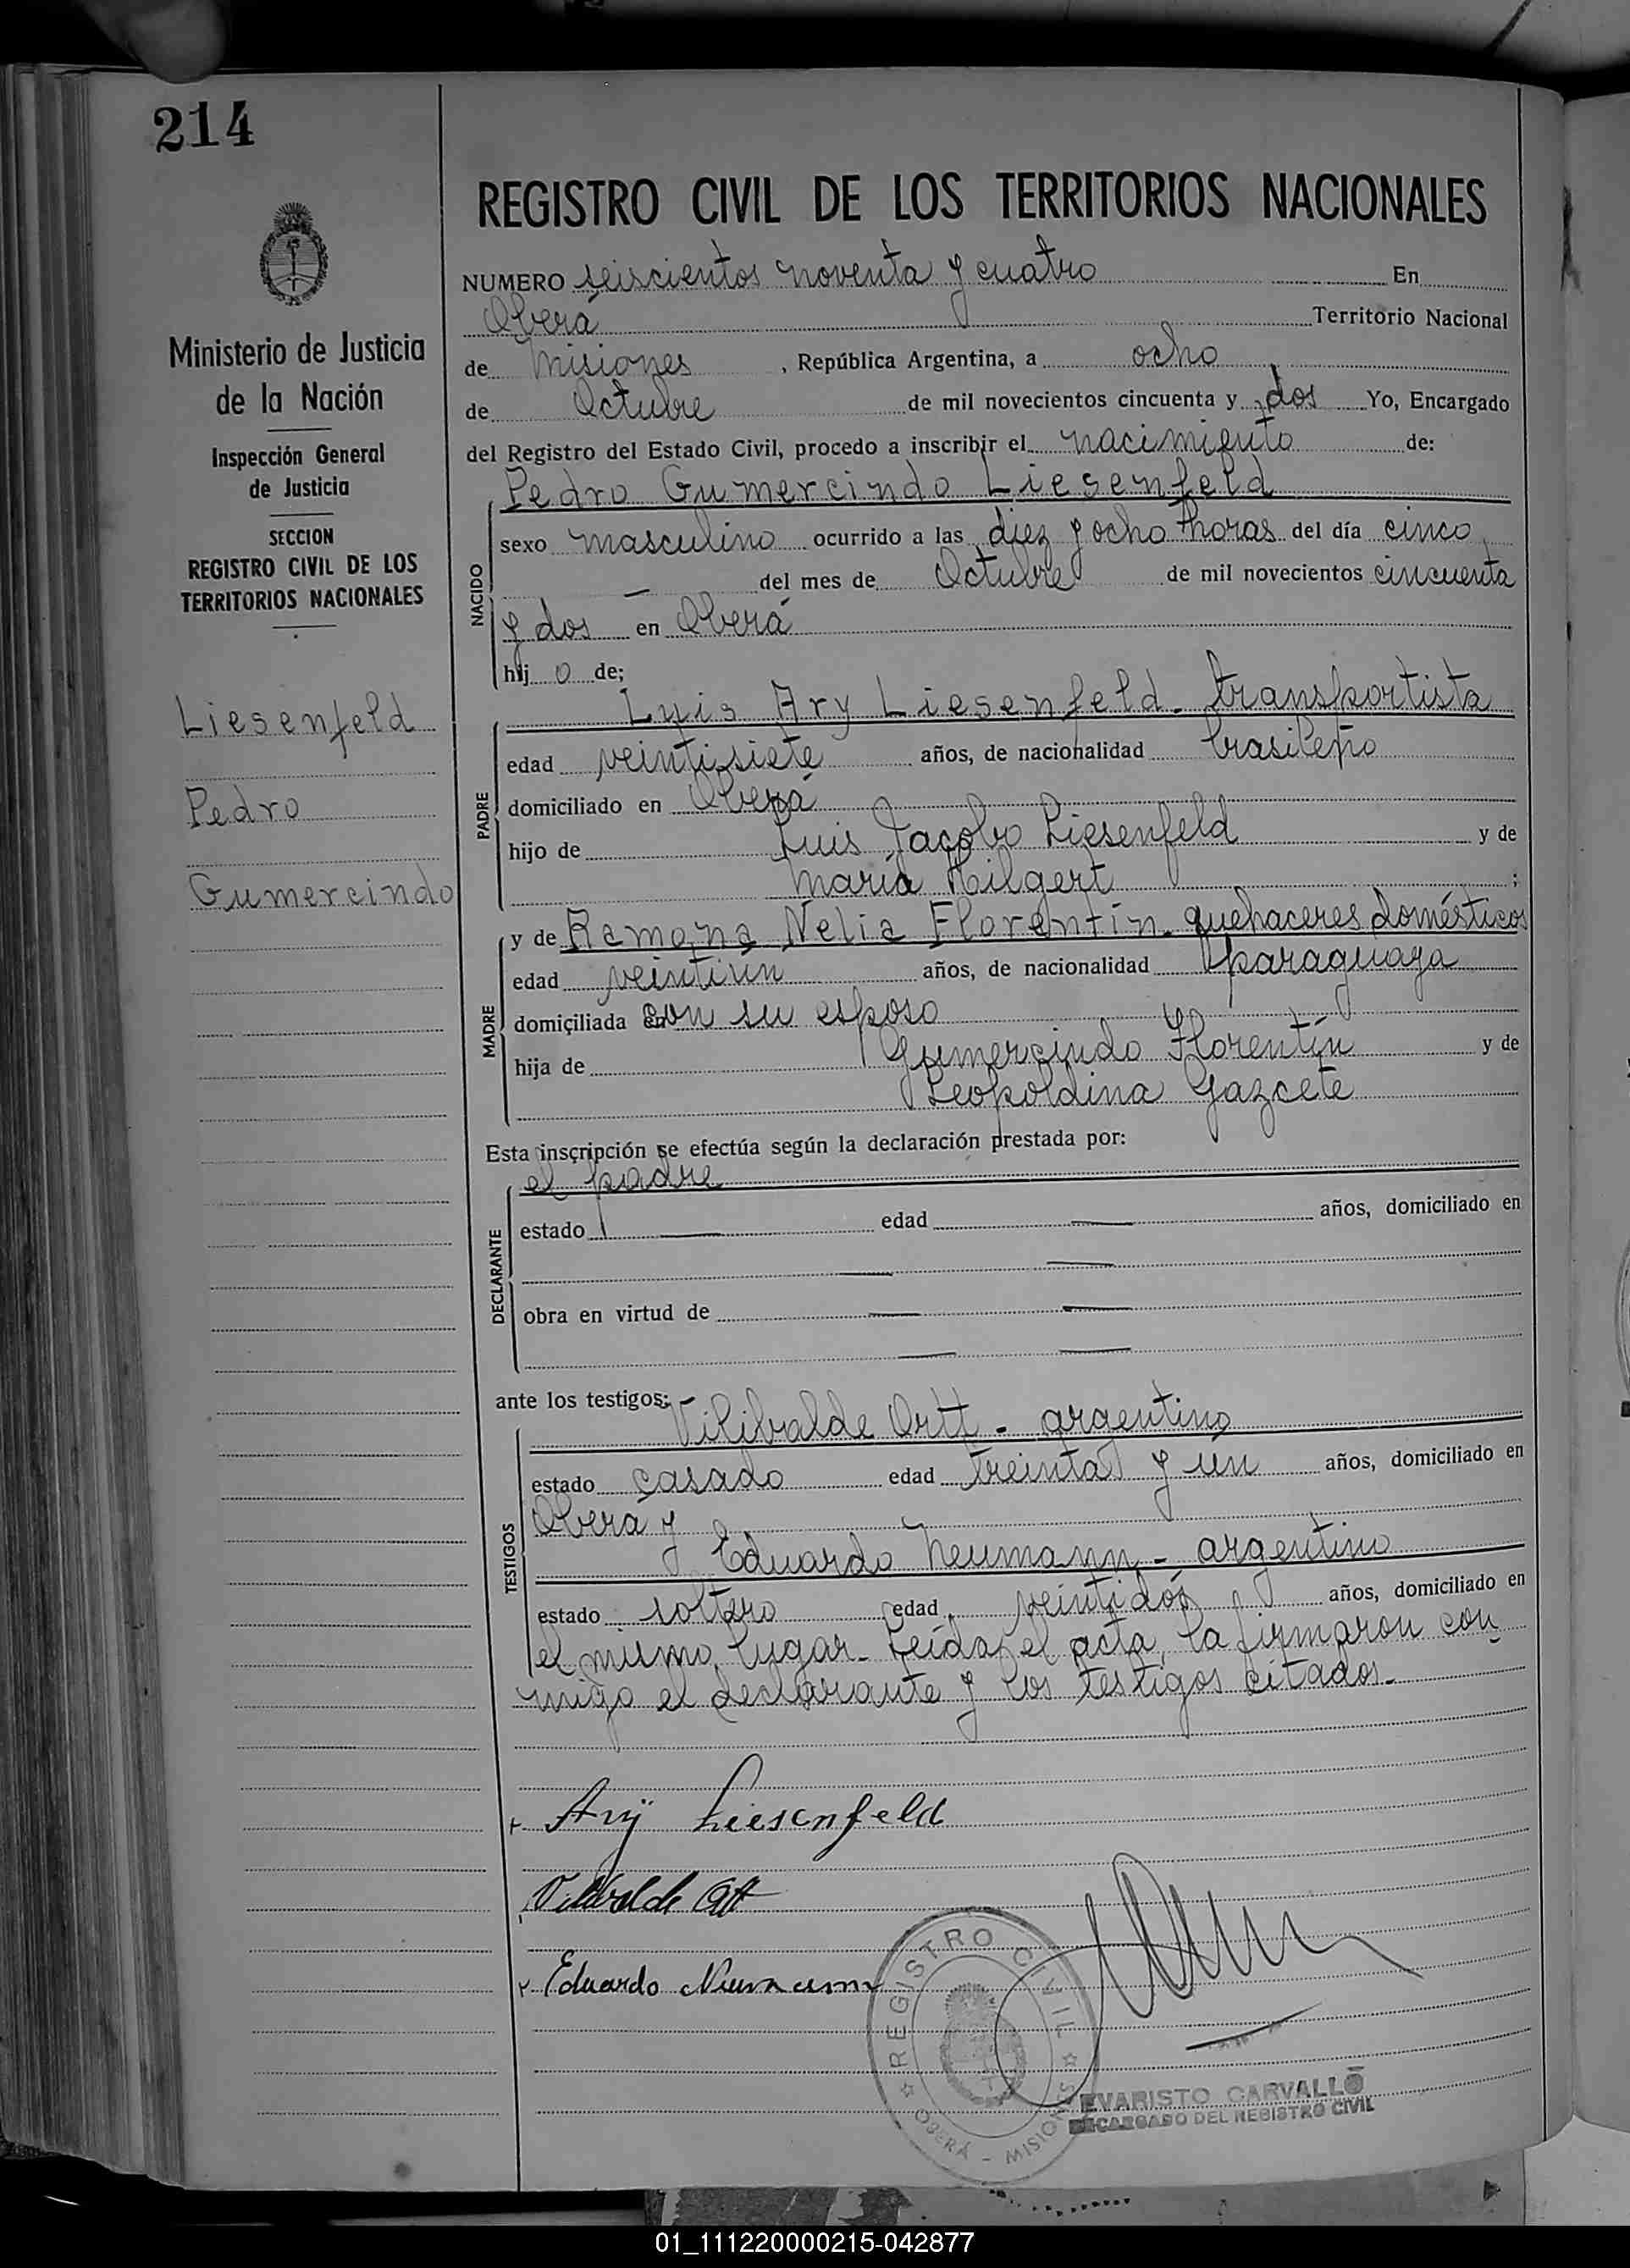 214
Ministerio de Justicia
de la Nación
Inspección General
de Justicia
SECCION
REGISTRO CIVIL DE LOS
TERRITORIOS NACIONALES
Liesenfeld
Pedro
Gumercindo
REGISTRO CIVIL DE LOS TERRITORIOS NACIONALES
NUMERO seiscientos noventa y cuatro En
Oberá Territorio Nacional
de Misiones, República Argentina, a ocho
de Octubre de mil novecientos cincuenta y dos Yo, Encargado
del Registro del Estado Civil, procedo a inscribir el nacimiento de:
Pedro Gumercindo Liesenfeld
NACIDO
sexo masculino ocurrido a las diez y ocho horas del día cinco
— del mes de Octubre de mil novecientos cincuenta
y dos en Oberá
hij o de;
PADRE
Luis Ary Liesenfeld - transportista
edad veintisiete años, de nacionalidad brasileño
domiciliado en Oberá
hijo de Luis Jacobo Liesenfeld y de
María Hilgert ;
MADRE
y de Ramona Nelia Florentín - quehaceres domésticos
edad veintiún años, de nacionalidad paraguaya
domiciliada en con su esposo
hija de Gumercindo Florentín y de
Leopoldina Gazcete
Esta inscripción se efectúa según la declaración prestada por:
DECLARANTE
el padre
estado — edad — años, domiciliado en
— —
obra en virtud de — —
— —
ante los testigos:
TESTIGOS
Vilibalde Ortt - argentino
estado casado edad treinta y un años, domiciliado en
Oberá y
Eduardo Neumann - argentino
estado soltero edad veintidós años, domiciliado en
el mismo lugar - Leída el acta, la firmaron con
migo el declarante y los testigos citados.-
Ary Liesenfeld
Vilibalde Ott
Eduardo Neumann
REGISTRO CIVIL
OBERÁ - MISIONES
EVARISTO CARVALLO
ENCARGADO DEL REGISTRO CIVIL
01_111220000215-042877